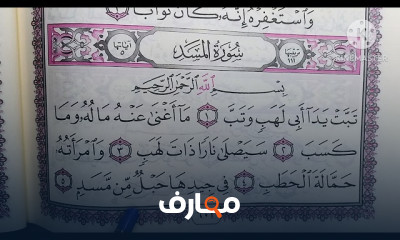 وَاسْتَغْفِرْهُ إِنَّهُ كَانَ تَوَّابًا
ترتيبها ١١١ سُورَةُ المَسَد آياتها ٥
بِسْمِ اللَّهِ الرَّحْمَٰنِ الرَّحِيمِ
تَبَّتْ يَدَا أَبِي لَهَبٍ وَتَبَّ ١ مَا أَغْنَىٰ عَنْهُ مَالُهُ وَمَا
كَسَبَ ٢ سَيَصْلَىٰ نَارًا ذَاتَ لَهَبٍ ٣ وَامْرَأَتُهُ
حَمَّالَةَ الْحَطَبِ ٤ فِي جِيدِهَا حَبْلٌ مِّن مَّسَدٍ ٥
معارف